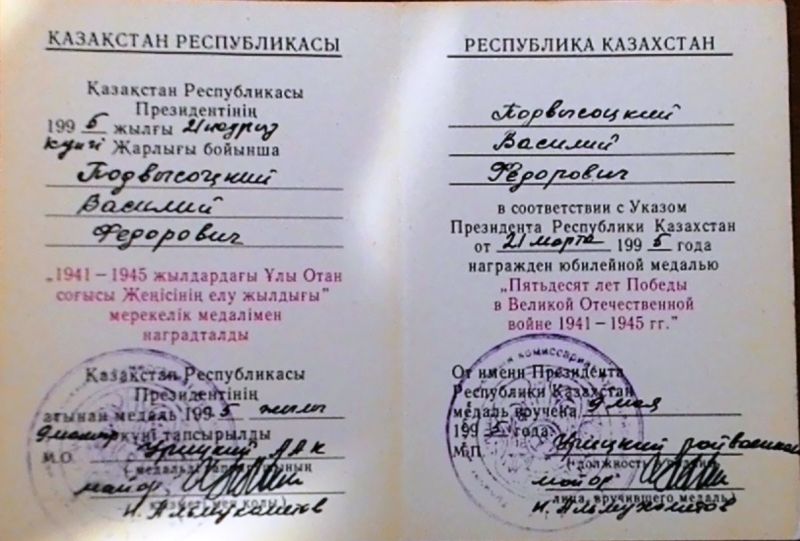 ҚАЗАҚСТАН РЕСПУБЛИКАСЫ
Қазақстан Республикасы
Президентінің
1995 жылғы 21 наурыз
күнгі Жарлығы бойынша
Подвысоцкий
Василий
Федорович
„1941 – 1945 жылдардағы Ұлы Отан
соғысы Жеңісінің елу жылдығы”
мерекелік медалімен
наградталды
Қазақстан Республикасы
Президентінің
атынан медаль 1995 жылы
9 күні тапсырылды
М.О. Урицкий
майор
Н. Альмухаметов
РЕСПУБЛИКА КАЗАХСТАН
Подвысоцкий
Василий
Федорович
в соответствии с Указом
Президента Республики Казахстан
от 21 марта 1995 года
награжден юбилейной медалью
„Пятьдесят лет Победы
в Великой Отечественной
войне 1941 – 1945 гг.”
От имени Президента
Республики Казахстан
медаль вручена 9 мая
1995 года
М.П. Урицкий райвоенком
(должность
майор
лица, вручившего медаль)
Н. Альмухаметов